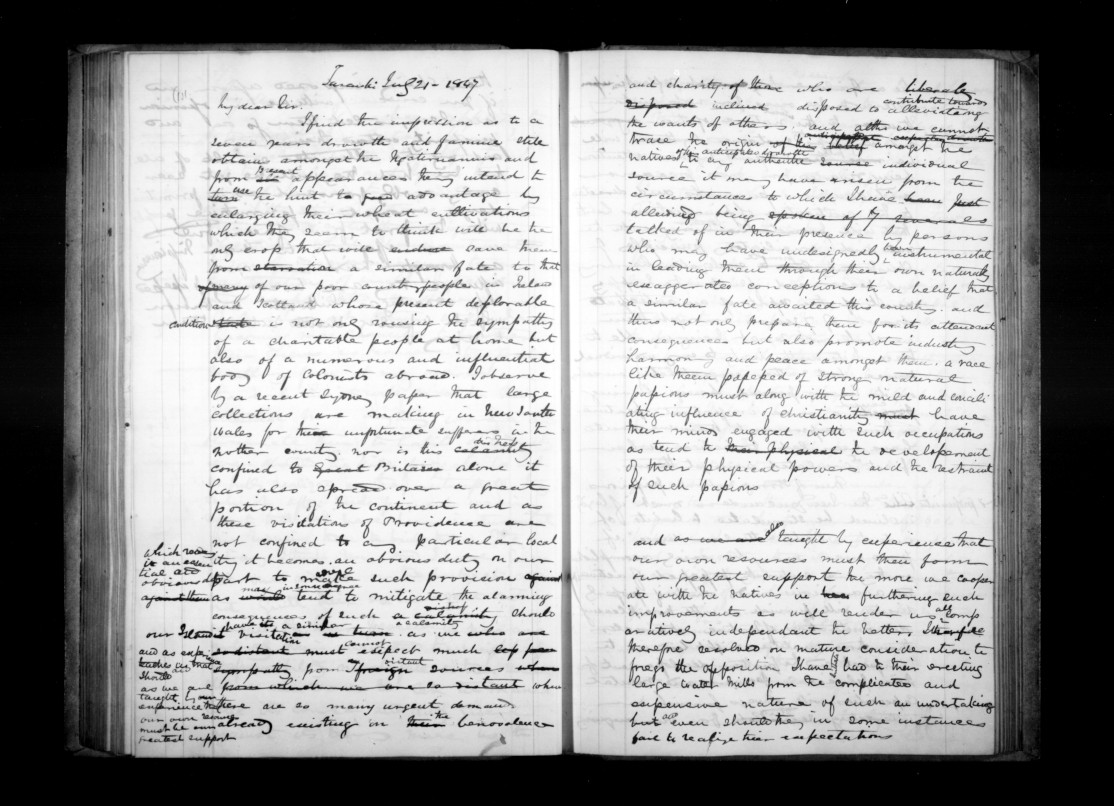 Taranaki July 21 - 1847
My dear Sir.
I find the impression as to a
seven years drouth and famine still
obtains amongst the Ngatiruanuis and
from recent appearances they intend to
use the hint to advantage by
enlarging their wheat cultivations
which they seem to think will be the
only crop that will save them
from starvation a similar fate to that
of many of our poor country people in Ireland
and Scotland whose present deplorable
condition is not only rousing the sympathy
of a charitable people at home but
also of a numerous and influential
body of Colonists abroad. I observe
by a recent Sydney paper that large
collections are making in New South
Wales for their unfortunate sufferers in the
mother country nor is this calamity distress
confined to Great Britain alone it
has also spread over a great
portion of the continent and as
these visitations of Providence are
not confined to any particular local
ity it becomes an obvious duty on our
part to make such provision against
against them as would tend to mitigate the alarming
consequences of such a calamity should
our Island visitation as we who are
so distant must expect much
sympathy from foreign distant sources
from which we are so distant where
there are so many urgent demands
already existing on their the benevolence
which renders
it an essen
tial and
obvious
and as
should
as we are
taught by our
experience that
our own resources
must be our
greatest support
and charity of those who are liberally
disposed inclined disposed to contribute towards alleviating
the wants of others. and altho we cannot
trace the origin of this belief amongst the
natives to any authentic source individual
source it may have arisen from the
circumstances to which I have been just
alluding being spoken of by severals
talked of in their presence by persons
who may have undesignedly been instrumental
in leading them through their own naturally
exaggerated conceptions to a belief that
a similar fate awaited this country. and
thus not only prepare them for its attendant
consequences but also promote industry
harmony and peace amongst them. a race
like them possessed of strong natural
passions must along with the mild and concili
ating influence of christianity must have
their minds engaged with such occupations
as tend to their physical the developement
of their physical powers and the restraint
of such passions
and as we are also taught by experience that
our own resources must then form
our greatest support the more we cooper
ate with the natives in furthering such
improvements as will render us all comp
aratively independant the better, I therefore
therefore resolved on mature consideration to
forego the opposition I have had to their erecting
large water Mills from the complicated and
expensive nature of such an undertaking
but even should they in some instances
fail to realize their expectations